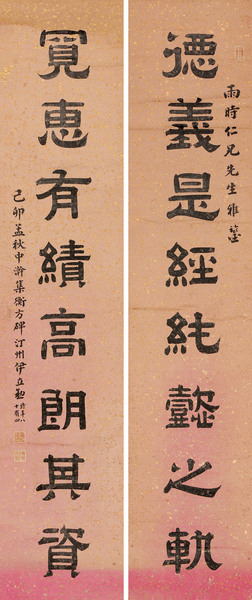 雨時仁兄先生雅鑒
德義是經純懿之軌
寬惠有績高朗其資
己卯孟秋中澣集衡方碑汀州伊立勳時年八十有四